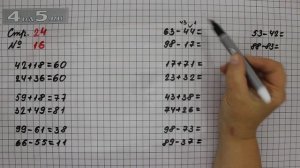 4á5.me
Стр. 24
№ 16
42+18=60
24+36=60
59+18=77
32+49=81
99-61=38
66-55=11
63-44=
98-17=
17+71=
23+32=
43+38=
74+26=
98-73=
89-37=
53-42=
88-83=